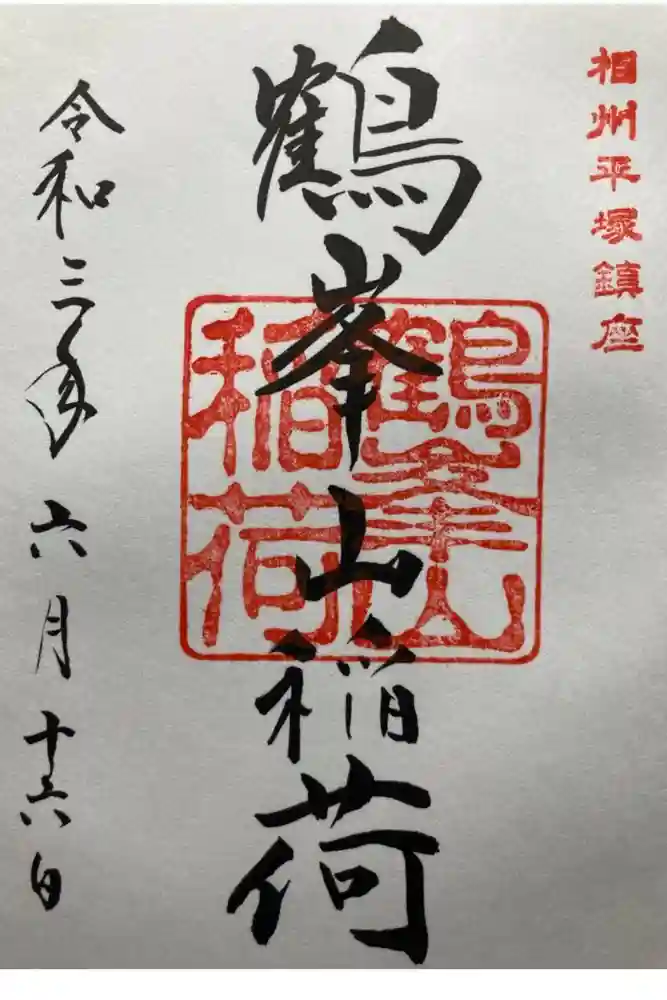 相州平塚鎮座
鶴峯山稲荷
鶴峯山
稲荷
令和三年 六月 十六日